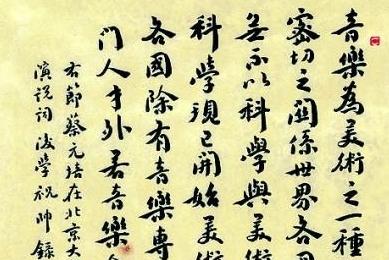 音樂為美術之一種
密切之關係世界各
無不以科學與美術
科學現已開始美術
各國除有音樂專
门人才外若音樂
右節蔡元培在北京大
演說詞 後學祝帅錄